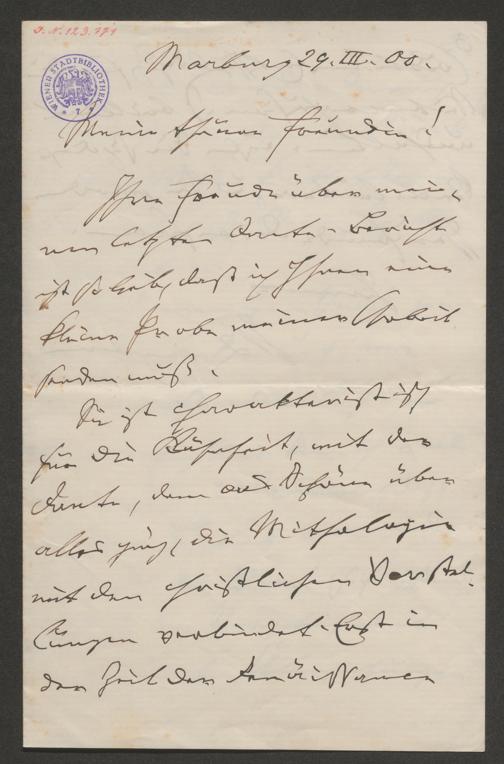 J. N. 123.771
WIENER STADTBIBLIOTHEK
Marburg 29. III. 00.
Meine theure Freundin!
Ihre Freude über mei-
nen letzten Dante-Bericht
ist so lieb, daß ich Ihnen eine
kleine Probe meiner Arbeit
senden muß.
Sie ist charakteristisch
für die Kühnheit, mit der
Dante, dem das Schöne über
alles ging, die Mithologie
mit den christlichen Vorstel-
lungen verbindet. Erst in
der Zeit der Renaissance